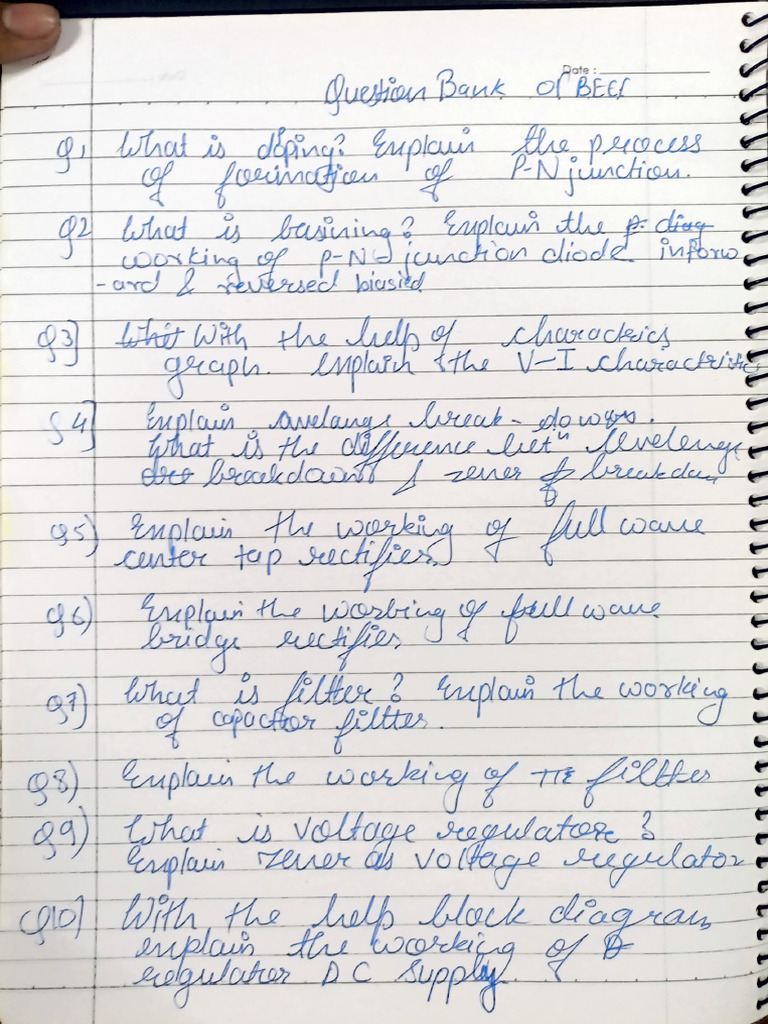 Date :
Question Bank of BEEE
Q1 What is doping? Explain the process
of formation of P-N junction.
Q2 What is basining? Explain the p- diag
working of P-N junction diode inforw
-ard & reversed biasied
Q3] What With the help of charactrics
graph. explain the V-I charactristics
Q4] Explain avelange break-down.
What is the difference betn levelenge
breakdown & zener breakdown
Q5) Explain the working of full wave
center tap rectifier.
Q6) Explain the working of full wave
bridge rectifier
Q7) What is filtter? Explain the working
of capactor filtter.
Q8) Explain the working of filtter
Q9) What is voltage regulator?
Explain zener as voltage regulator
Q10) With the help block diagram
explain the working of
regulator DC supply.